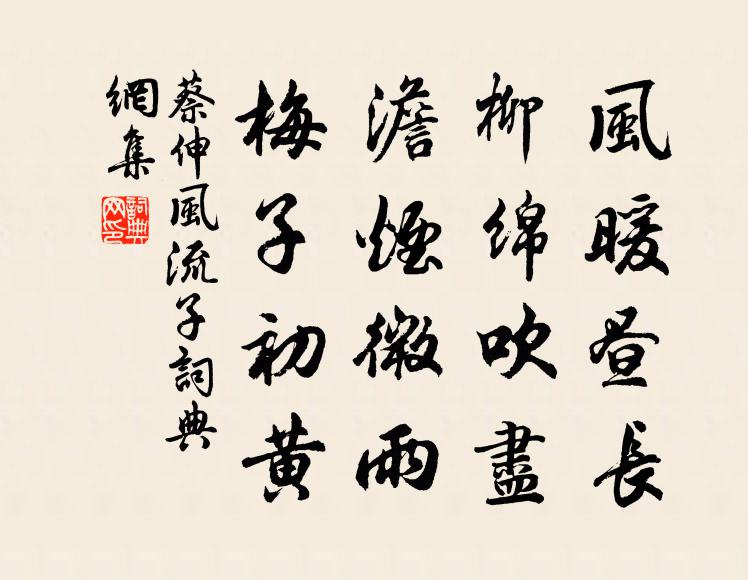 風暖昼長
柳綿吹盡
澹煙微雨
梅子初黄
蔡伸風流子詞典
網集
詞典
网印